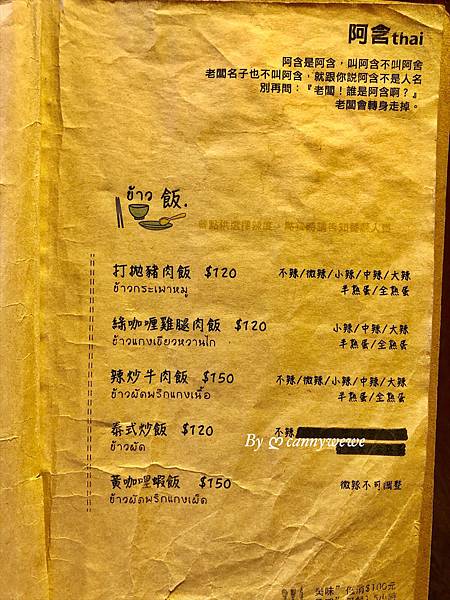 阿含thai
阿含是阿含，叫阿含不叫阿舍
老闆名子也不叫阿含，就跟你說阿含不是人名
別再問：『老闆！誰是阿含啊？』
老闆會轉身走掉。
ข้าว 飯.
打拋豬肉飯 $120 不辣/微辣/小辣/中辣/大辣
ข้าวกระเพาหมู 半熟蛋/全熟蛋
綠咖喱雞腿肉飯 $120 小辣/中辣/大辣
ข้าวแกงเขียวหวานไก่ 半熟蛋/全熟蛋
辣炒牛肉飯 $150 不辣/微辣/小辣/中辣/大辣
ข้าวผัดพริกแกงเนื้อ 半熟蛋/全熟蛋
泰式炒飯 $120 不辣
ข้าวผัด
By cannywewe
黃咖哩蝦飯 $150 微辣不可調整
ข้าวผัดพริกแกงเผ็ด
$100元